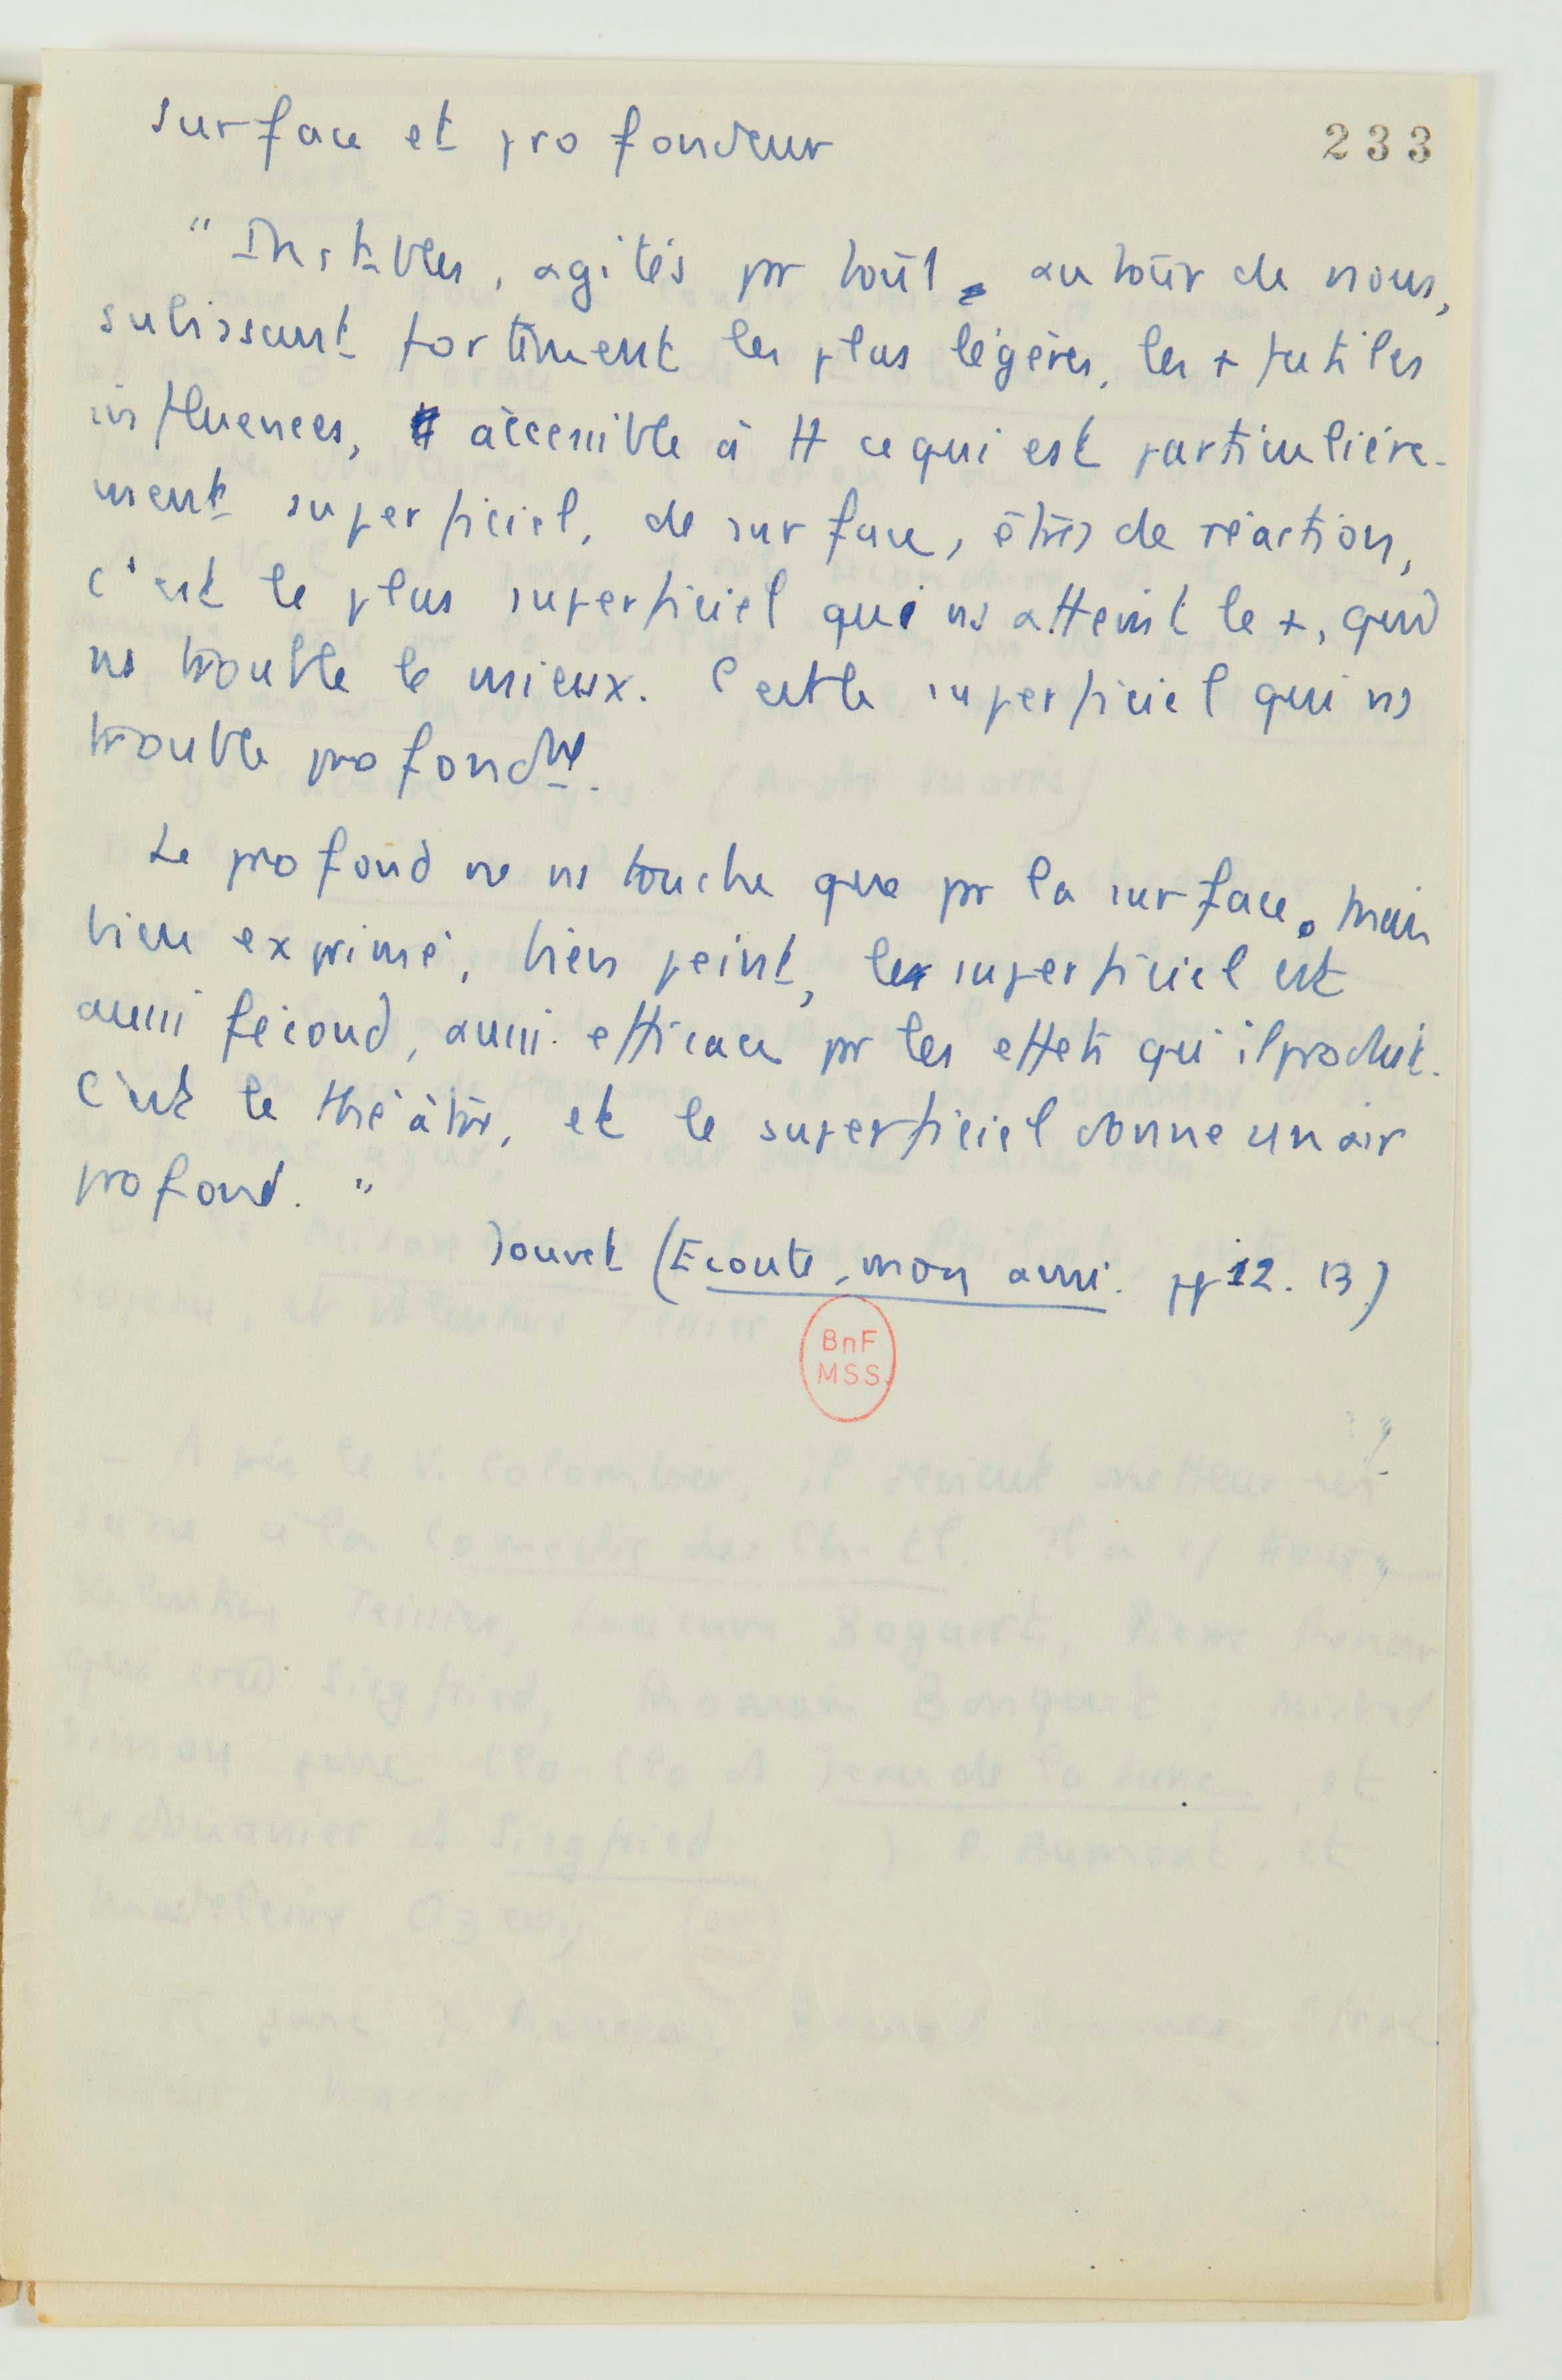 surface et profondeur
233
" Instables, agités pr tout, autour de nous,
subissant fortement les plus légères, les + futiles
influences, accessible à tt ce qui est particulière-
ment superficiel, de surface, êtres de réaction,
c'est le plus superficiel qui ns atteint le +, qui
ns trouble le mieux. C'est le superficiel qui ns
trouble profondmt.
Le profond ne ns touche que pr la surface. Mais
bien exprimé, bien peint, le superficiel est
aussi fécond, aussi efficace pr les effets qu'il produit.
C'est le théâtre, et le superficiel donne un air
profond. "
Jouvet (Ecoute, mon ami. pp 12. 13)
BnF
MSS